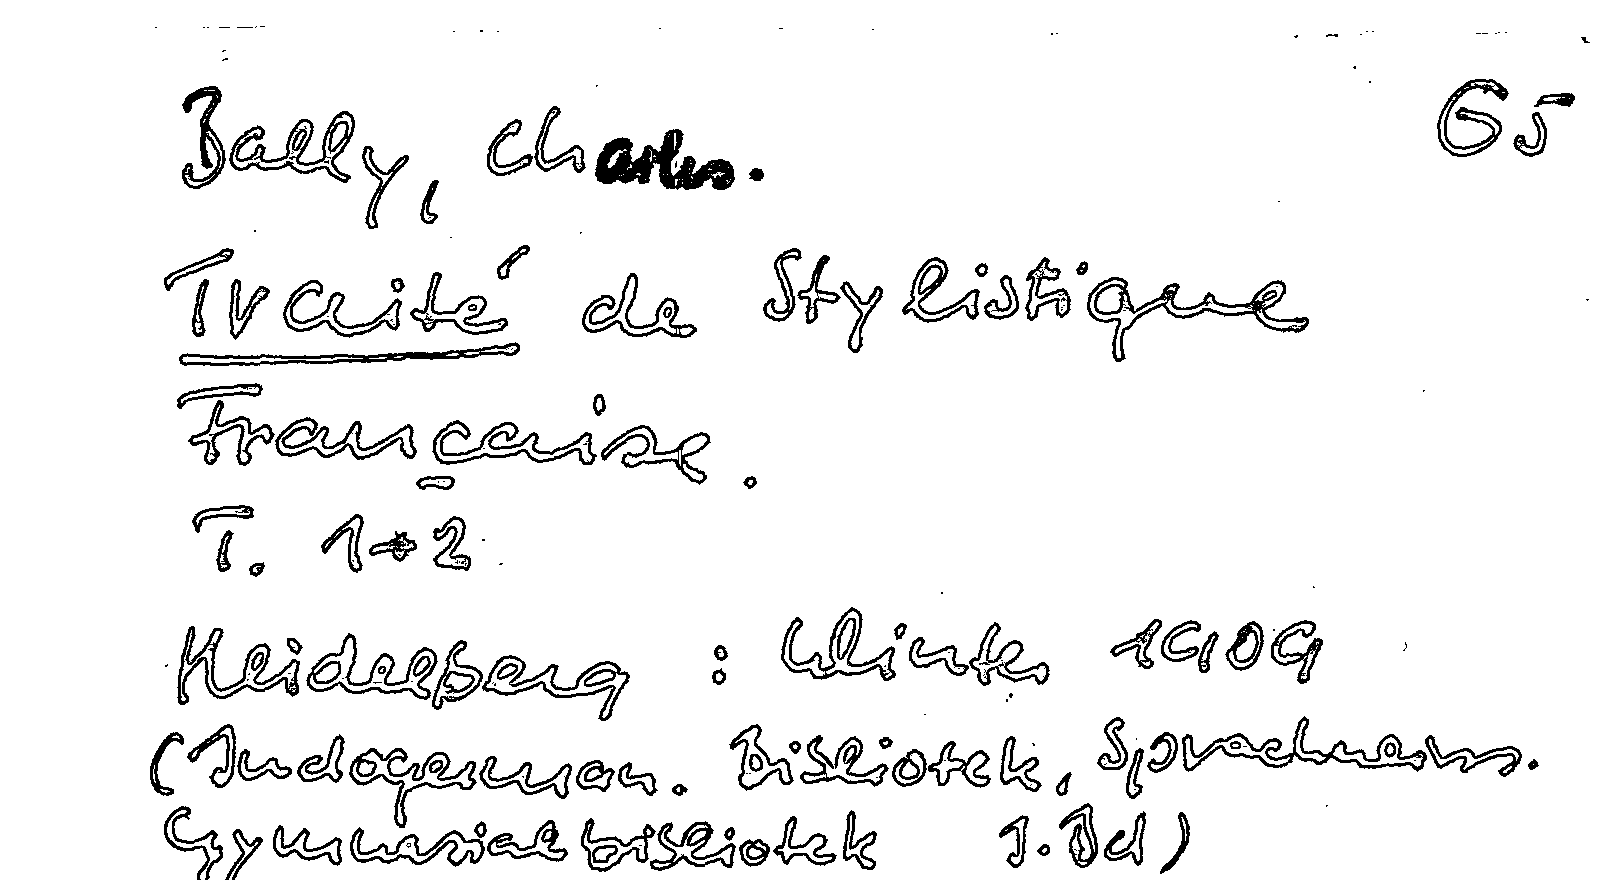 Bally, Charles. G5
Traité de Stylistique
Française.
T. 1+2
Heidelberg : Winter 1909
(Indogerman. Bibliotek, Sprachwiss.
Gymnasialbibliotek I. Bd)